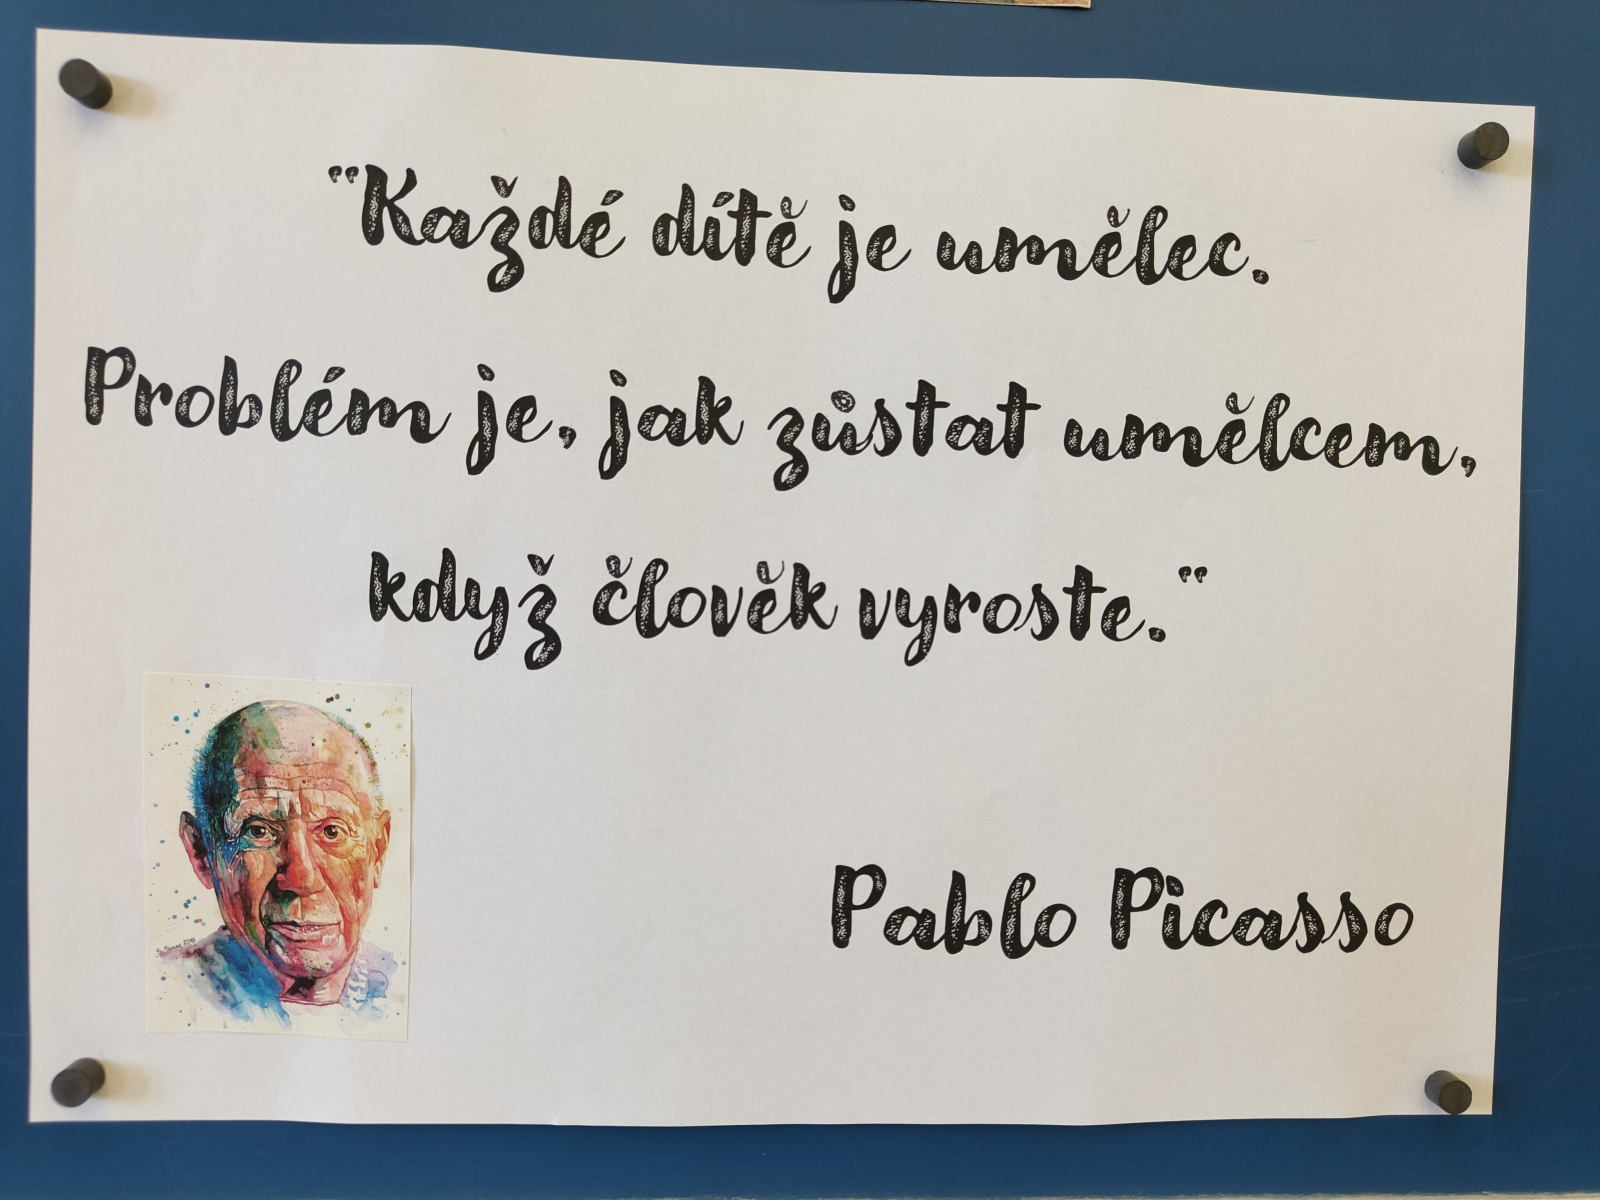 "Každé dítě je umělec.
Problém je, jak zůstat umělcem,
když člověk vyroste."
Pablo Picasso